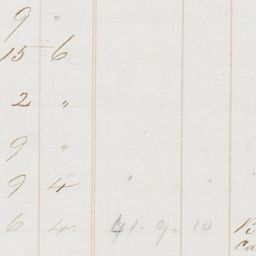 9 "
15 6
2 "
9 "
9 4
6 4 41. 9. 10 B
Ca